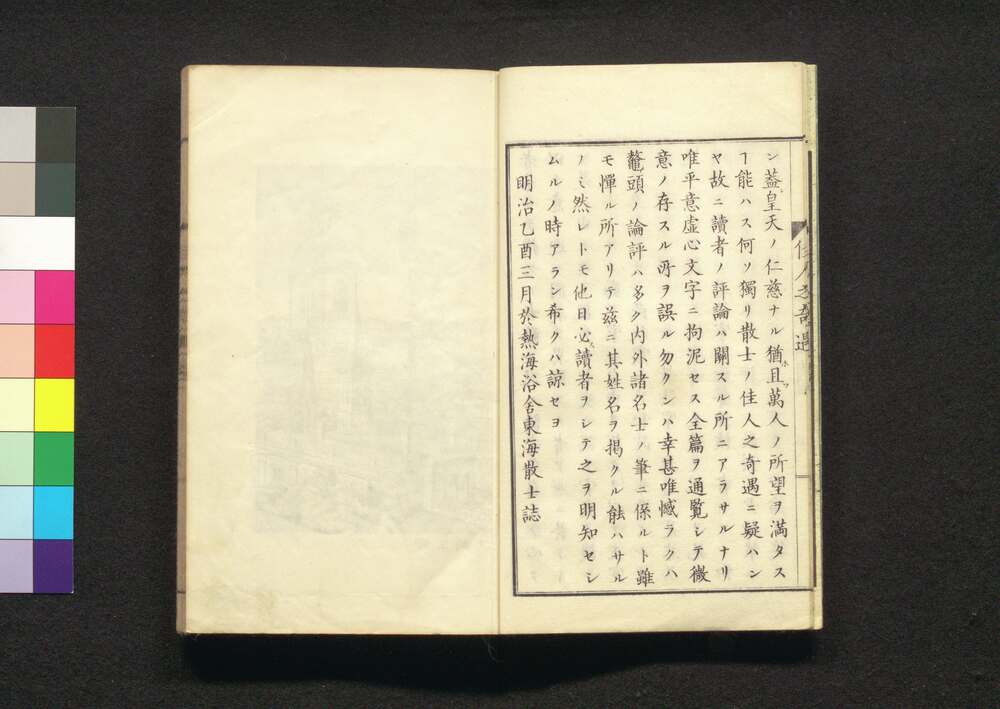 ン蓋皇天ノ仁慈ナル猶且萬人ノ所望ヲ満タス
ヿ能ハス何ソ獨リ散士ノ佳人之奇遇ニ疑ハン
ヤ故ニ讀者ノ評論ハ關スル所ニアラサルナリ
唯平意虚心文字ニ拘泥セス全篇ヲ通覧シテ微
意ノ存スル所ヲ誤ル勿クンハ幸甚唯憾ラクハ
鼇頭ノ論評ハ多ク内外諸名士ノ筆ニ係ルト雖
モ憚ル所アリテ茲ニ其姓名ヲ掲クル能ハサル
ノミ然レトモ他日必讀者ヲシテ之ヲ明知セシ
ムルノ時アラン希クハ諒セヨ
明治乙酉三月於熱海浴舎東海散士誌
佳人之奇遇